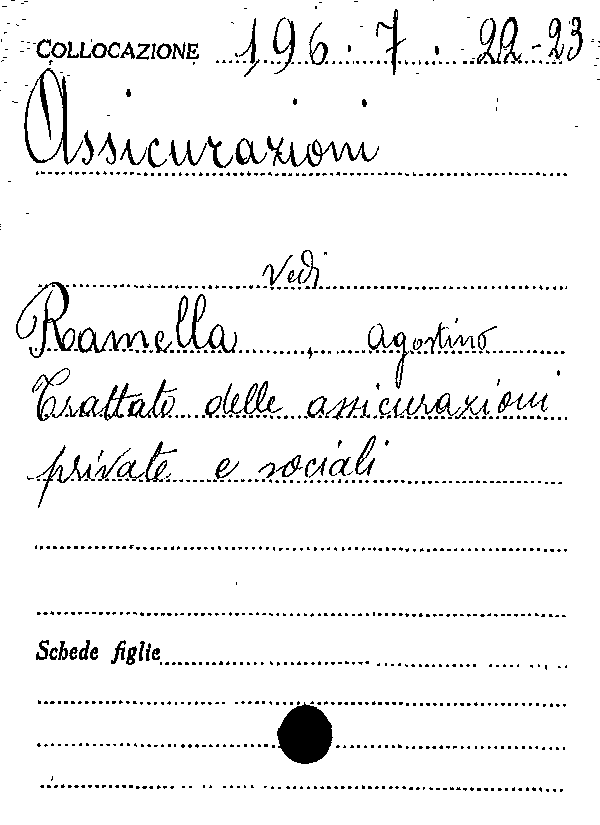 COLLOCAZIONE 196.7.22-23
Assicurazioni
Vedi
Ramella, Agostino
Trattato delle assicurazioni
private e sociali
Schede figlie